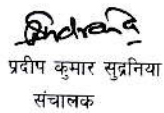 प्रदीप कुमार सुद्रनिया
संचालक